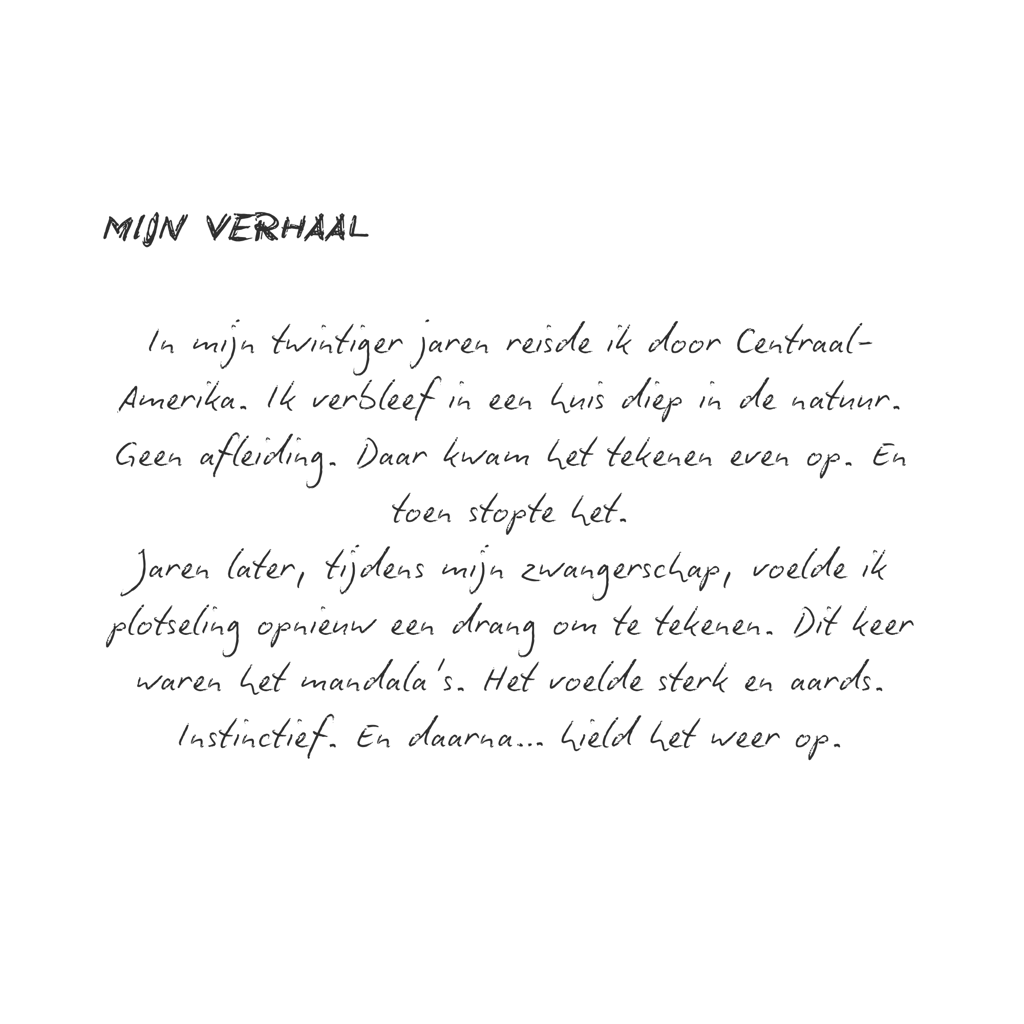 MIJN VERHAAL
In mijn twintiger jaren reisde ik door Centraal-
Amerika. Ik verbleef in een huis diep in de natuur.
Geen afleiding. Daar kwam het tekenen even op. En
toen stopte het.
Jaren later, tijdens mijn zwangerschap, voelde ik
plotseling opnieuw een drang om te tekenen. Dit keer
waren het mandala's. Het voelde sterk en aards.
Instinctief. En daarna... hield het weer op.